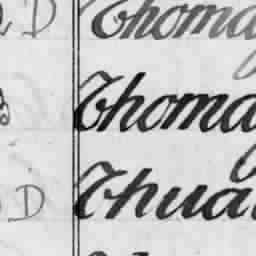 D Thoma
Thoma
D Thua